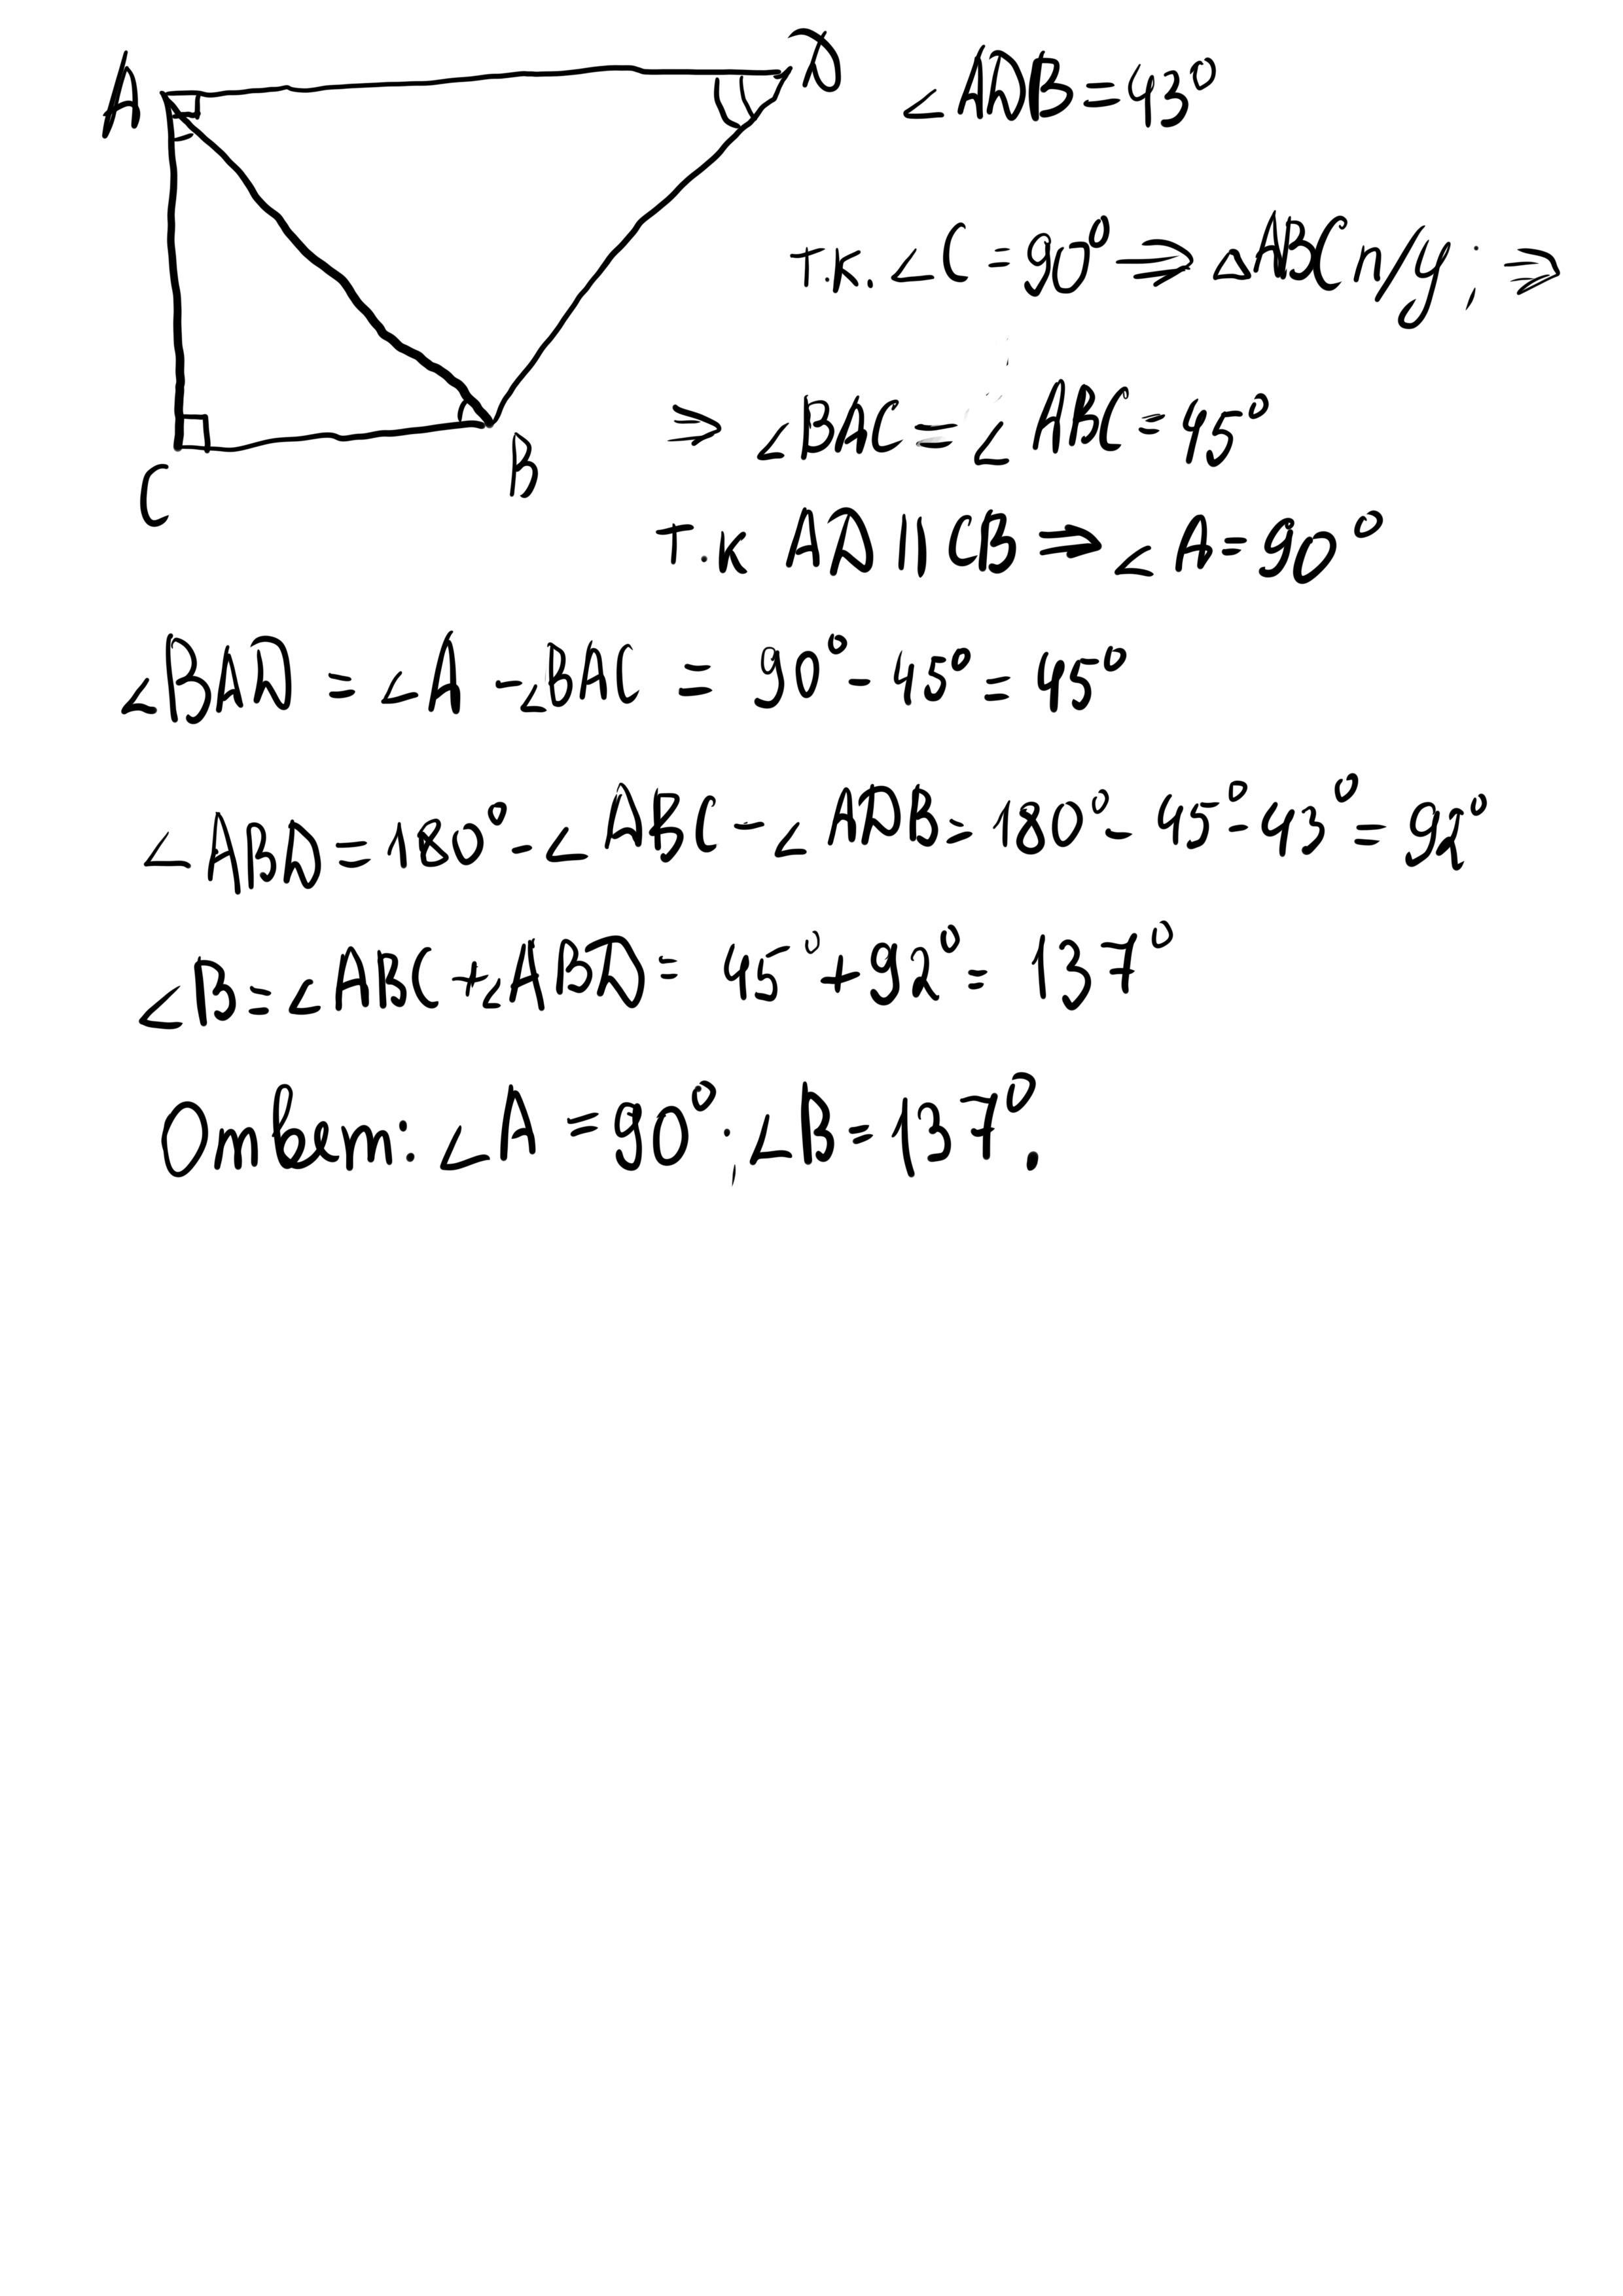 A
D
∠ADB=43°
т.к. ∠C=90° ⇒ △ABC п/у; ⇒
C
B
⇒ ∠BAC=∠ABC=45°
т.к AD||CB ⇒ ∠A=90°
∠BAD=∠A-∠BAC=90°-45°=45°
∠ABD=180°-∠ABC-∠ADB=180°-45°-43°=92°
∠B=∠ABC+∠ABD=45°+92°=137°
Ответ: ∠A=90°;∠B=137°.